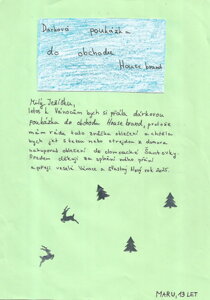 Dárková poukázka
do obchodu
House brand
Milý Ježíšku,
letos k Vánocům bych si přála dárkovou
poukázku do obchodu House brand, protože
mám ráda tuto značku oblečení a chtěla
bych jet s tetou nebo strejdem z domova
nakupovat oblečení do olomoucké Šantovky.
Předem děkuji za splnění mého přání
a přeji veselé Vánoce a šťastný Nový rok 2025.
MARU, 13 LET